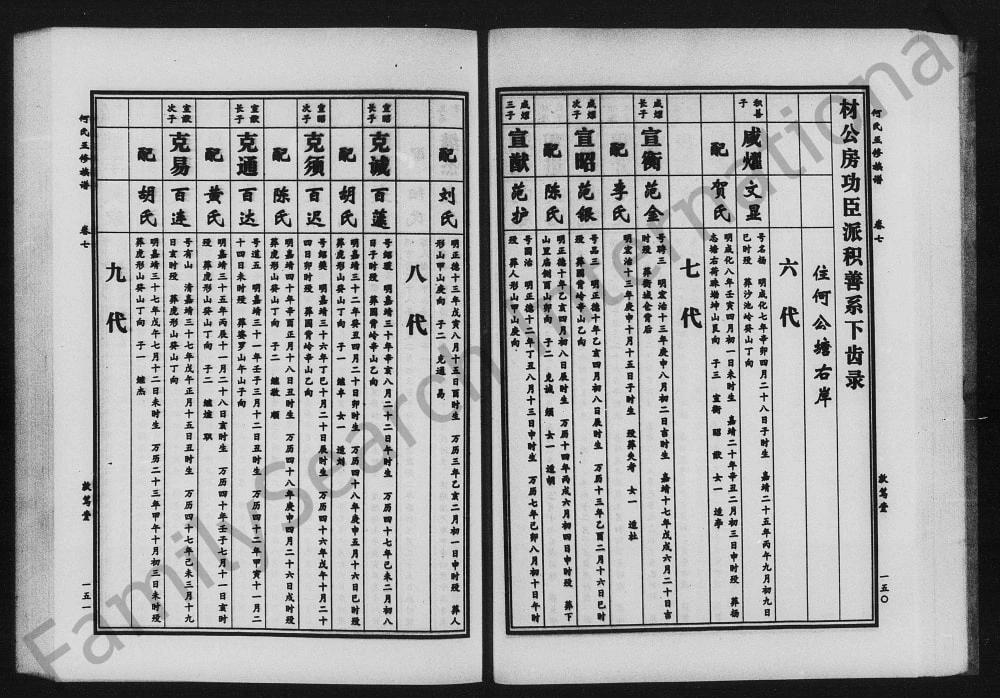 何氏五修族谱 卷七 敦笃堂 一五〇
材公房功臣派积善系下齿录
住何公塘右岸
六代
积善子 咸燿 文显 号名扬 明成化七年辛卯四月二十八日子时生 嘉靖二十五年丙午九月初九日巳时殁 葬沙池岭癸山丁向
配 贺氏 明成化八年壬寅四月初一日未时生 嘉靖二十年辛丑二月初三日申时殁 葬杨志塘右荷珠塝坤山艮向 子三 宣衡 昭 猷 女一 适李
七代
咸燿长子 宣衡 范金 号聘三 明宏治十三年庚申八月初二日吉时生 嘉靖十七年戊戌六月二十日吉时殁 葬衡城仓背后
配 李氏 明宏治十三年庚申十月十五日子时生 殁葬失考 女一 适杜
咸燿次子 宣昭 范银 号品正 明正德十年乙亥四月初八日辰时生 万历十三年乙酉二月十六日巳时殁 葬圆背岭辛山乙向
配 陈氏 明正德十年乙亥四月初八日辰时生 万历十四年丙戌六月初四日申时殁 葬下山里庙侧酉山卯向 子二 克诚 须 女一 适胡
咸燿三子 宣猷 范护 号国治 明正德十二年丁丑八月十三日申时生 万历七年己卯八月初十日午时殁 葬人形山甲山庚向
配 刘氏 明正德十三年戊寅八月十五日酉时生 万历三年乙亥二月初一日申时殁 葬人形山甲山庚向 子二 克通 易
八代
宣昭长子 克诚 百莲 号绍暖 明嘉靖三十年辛亥八月二十二日午时生 万历四十七年己未二月初八日子时殁 葬圆背岭辛山乙向
配 胡氏 明嘉靖三十二年癸丑四月二十日卯时生 万历四十八年庚申五月十六日巳时殁 葬虎形山癸山丁向 子一 继卓 女一 适刘
宣昭次子 克须 百迟 号绍奠 明嘉靖三十六年丁巳十月二十日辰时生 万历四十六年戊午十月二十四日卯时殁 葬圆背岭辛山乙向
配 陈氏 明嘉靖四十年辛酉正月十八日丑时生 万历四十八年庚申四月二十六日戌时殁 葬虎形山癸山丁向 子二 继敬 顺
宣猷长子 克通 百达 号道五 明嘉靖三十一年壬子三月十二日丑时生 万历四十二年甲寅十一月二十四日未时殁 葬婆罗山午山子向
配 黄氏 明嘉靖三十五年丙辰十一月二十八日亥时生 万历四十年壬子七月十一日亥时殁 葬虎形山癸山丁向 子二 继煌 联
宣猷次子 克易 百连 号有山 清嘉靖三十七年戊午正月十五日丑时生 万历四十七年己未三月十九日亥时殁 葬虎形山癸山丁向
配 胡氏 明嘉靖三十七年戊午七月十二日未时生 万历二十三年甲午十月初三日未时殁 葬虎形山癸山丁向 子一 继杰
九代
何氏五修族谱 卷七 敦笃堂 一五一
FamilySearch International